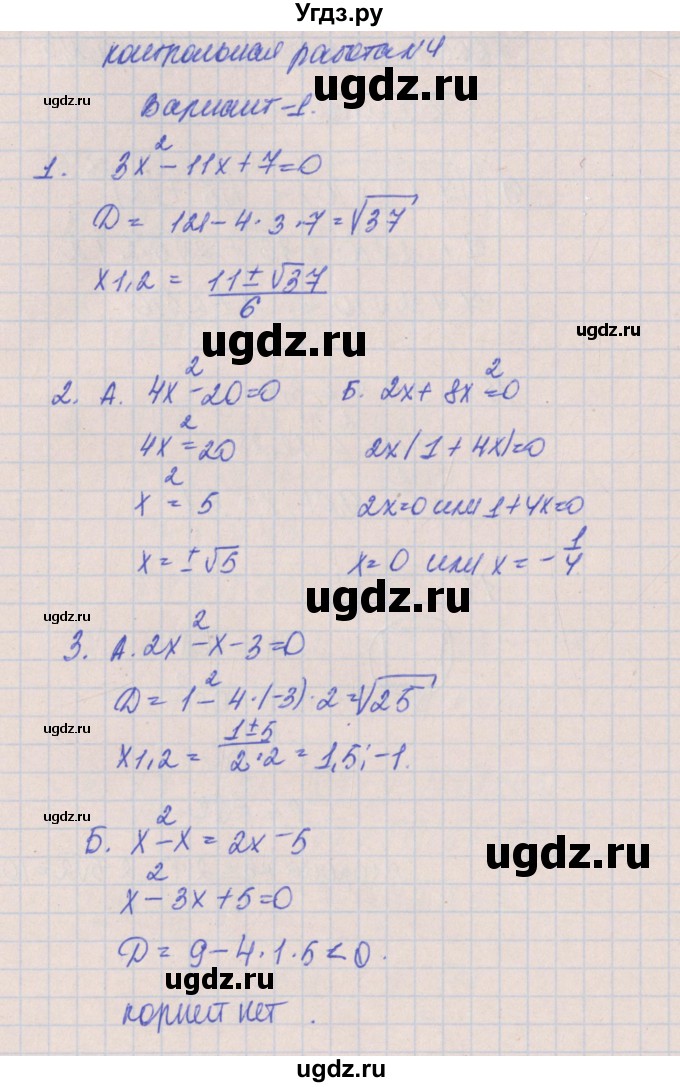 Угдз.ру
контрольная работа №4
ugdz.ru
ugdz.ru
Вариант-1.
ugdz.ru
1. 3x² - 11x + 7 = 0
D = 121 - 4·3·7 = √37
x1,2 = (11 ± √37)/6
ugdz.ru
ugdz.ru
2. А. 4x² - 20 = 0 Б. 2x + 8x² = 0
4x² = 20 2x(1 + 4x) = 0
x² = 5 2x = 0 или 1 + 4x = 0
x = ±√5 x = 0 или x = -1/4
ugdz.ru
ugdz.ru
3. А. 2x² - x - 3 = 0
D = 1² - 4·(-3)·2 = √25
x1,2 = (1 ± 5)/(2·2) = 1,5; -1.
ugdz.ru
ugdz.ru
Б. x² - x = 2x - 5
ugdz.ru
x² - 3x + 5 = 0
D = 9 - 4·1·5 < 0.
ugdz.ru
корней нет.
ugdz.ru